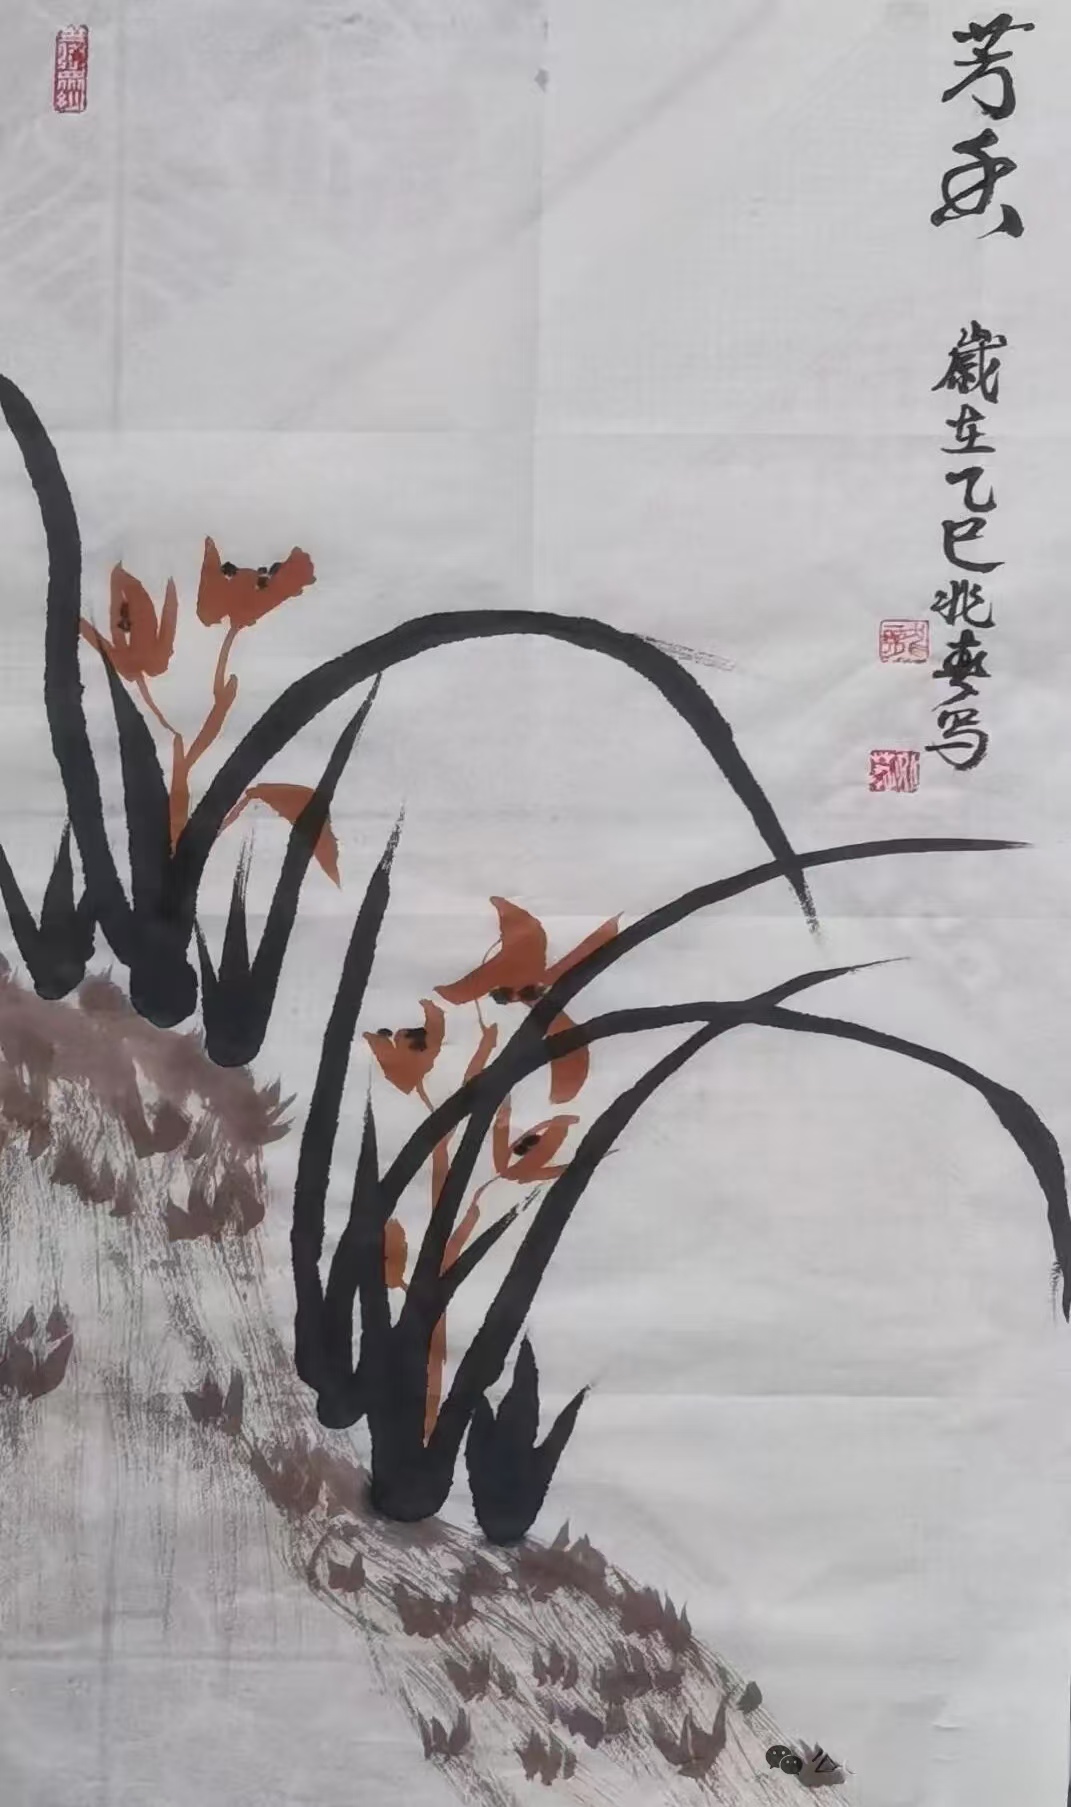 芳香
歲在乙巳兆春写
公